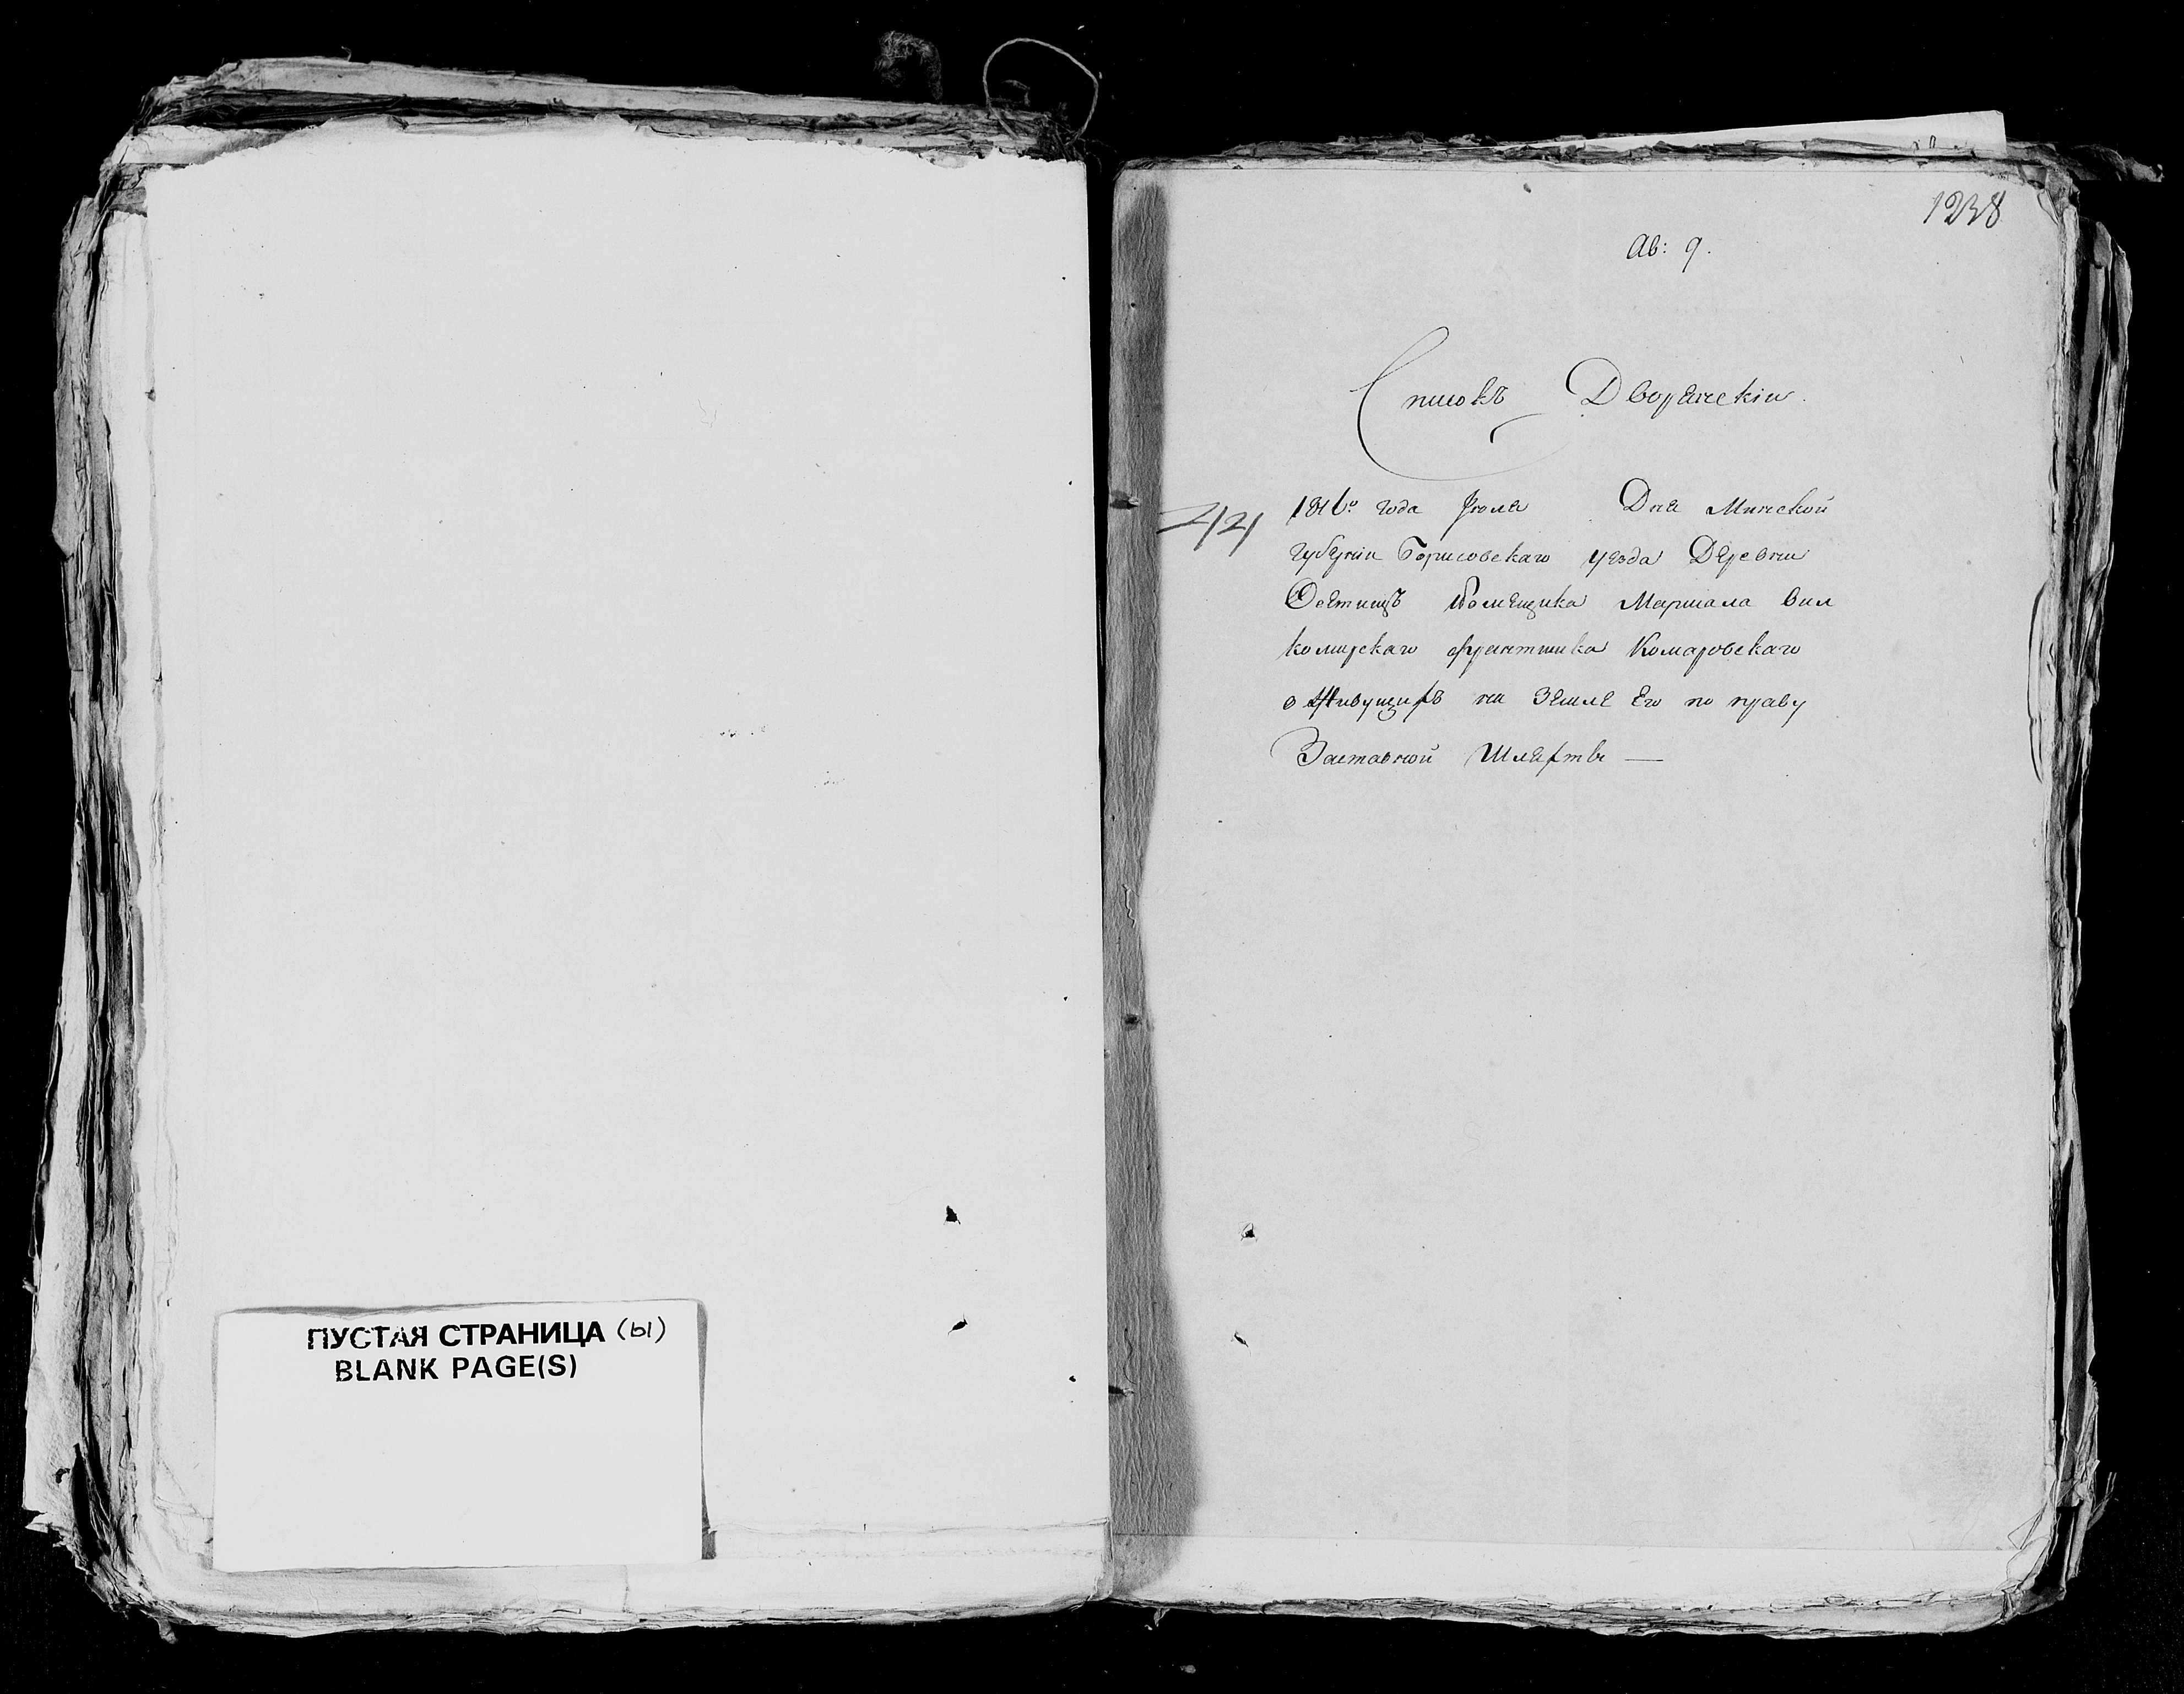 ПУСТАЯ СТРАНИЦА (ы)
BLANK PAGE(S)
1238
Ав: 9.
Списокъ Дворянскіи.
1816го года Июля Дня Минской
губернiи Борисовскаго уезда Деревни
Помещика Маршала Вил
комирскаго Комаровскаго
о Живущихъ на Земле Его по праву
Заставной Шляхты —